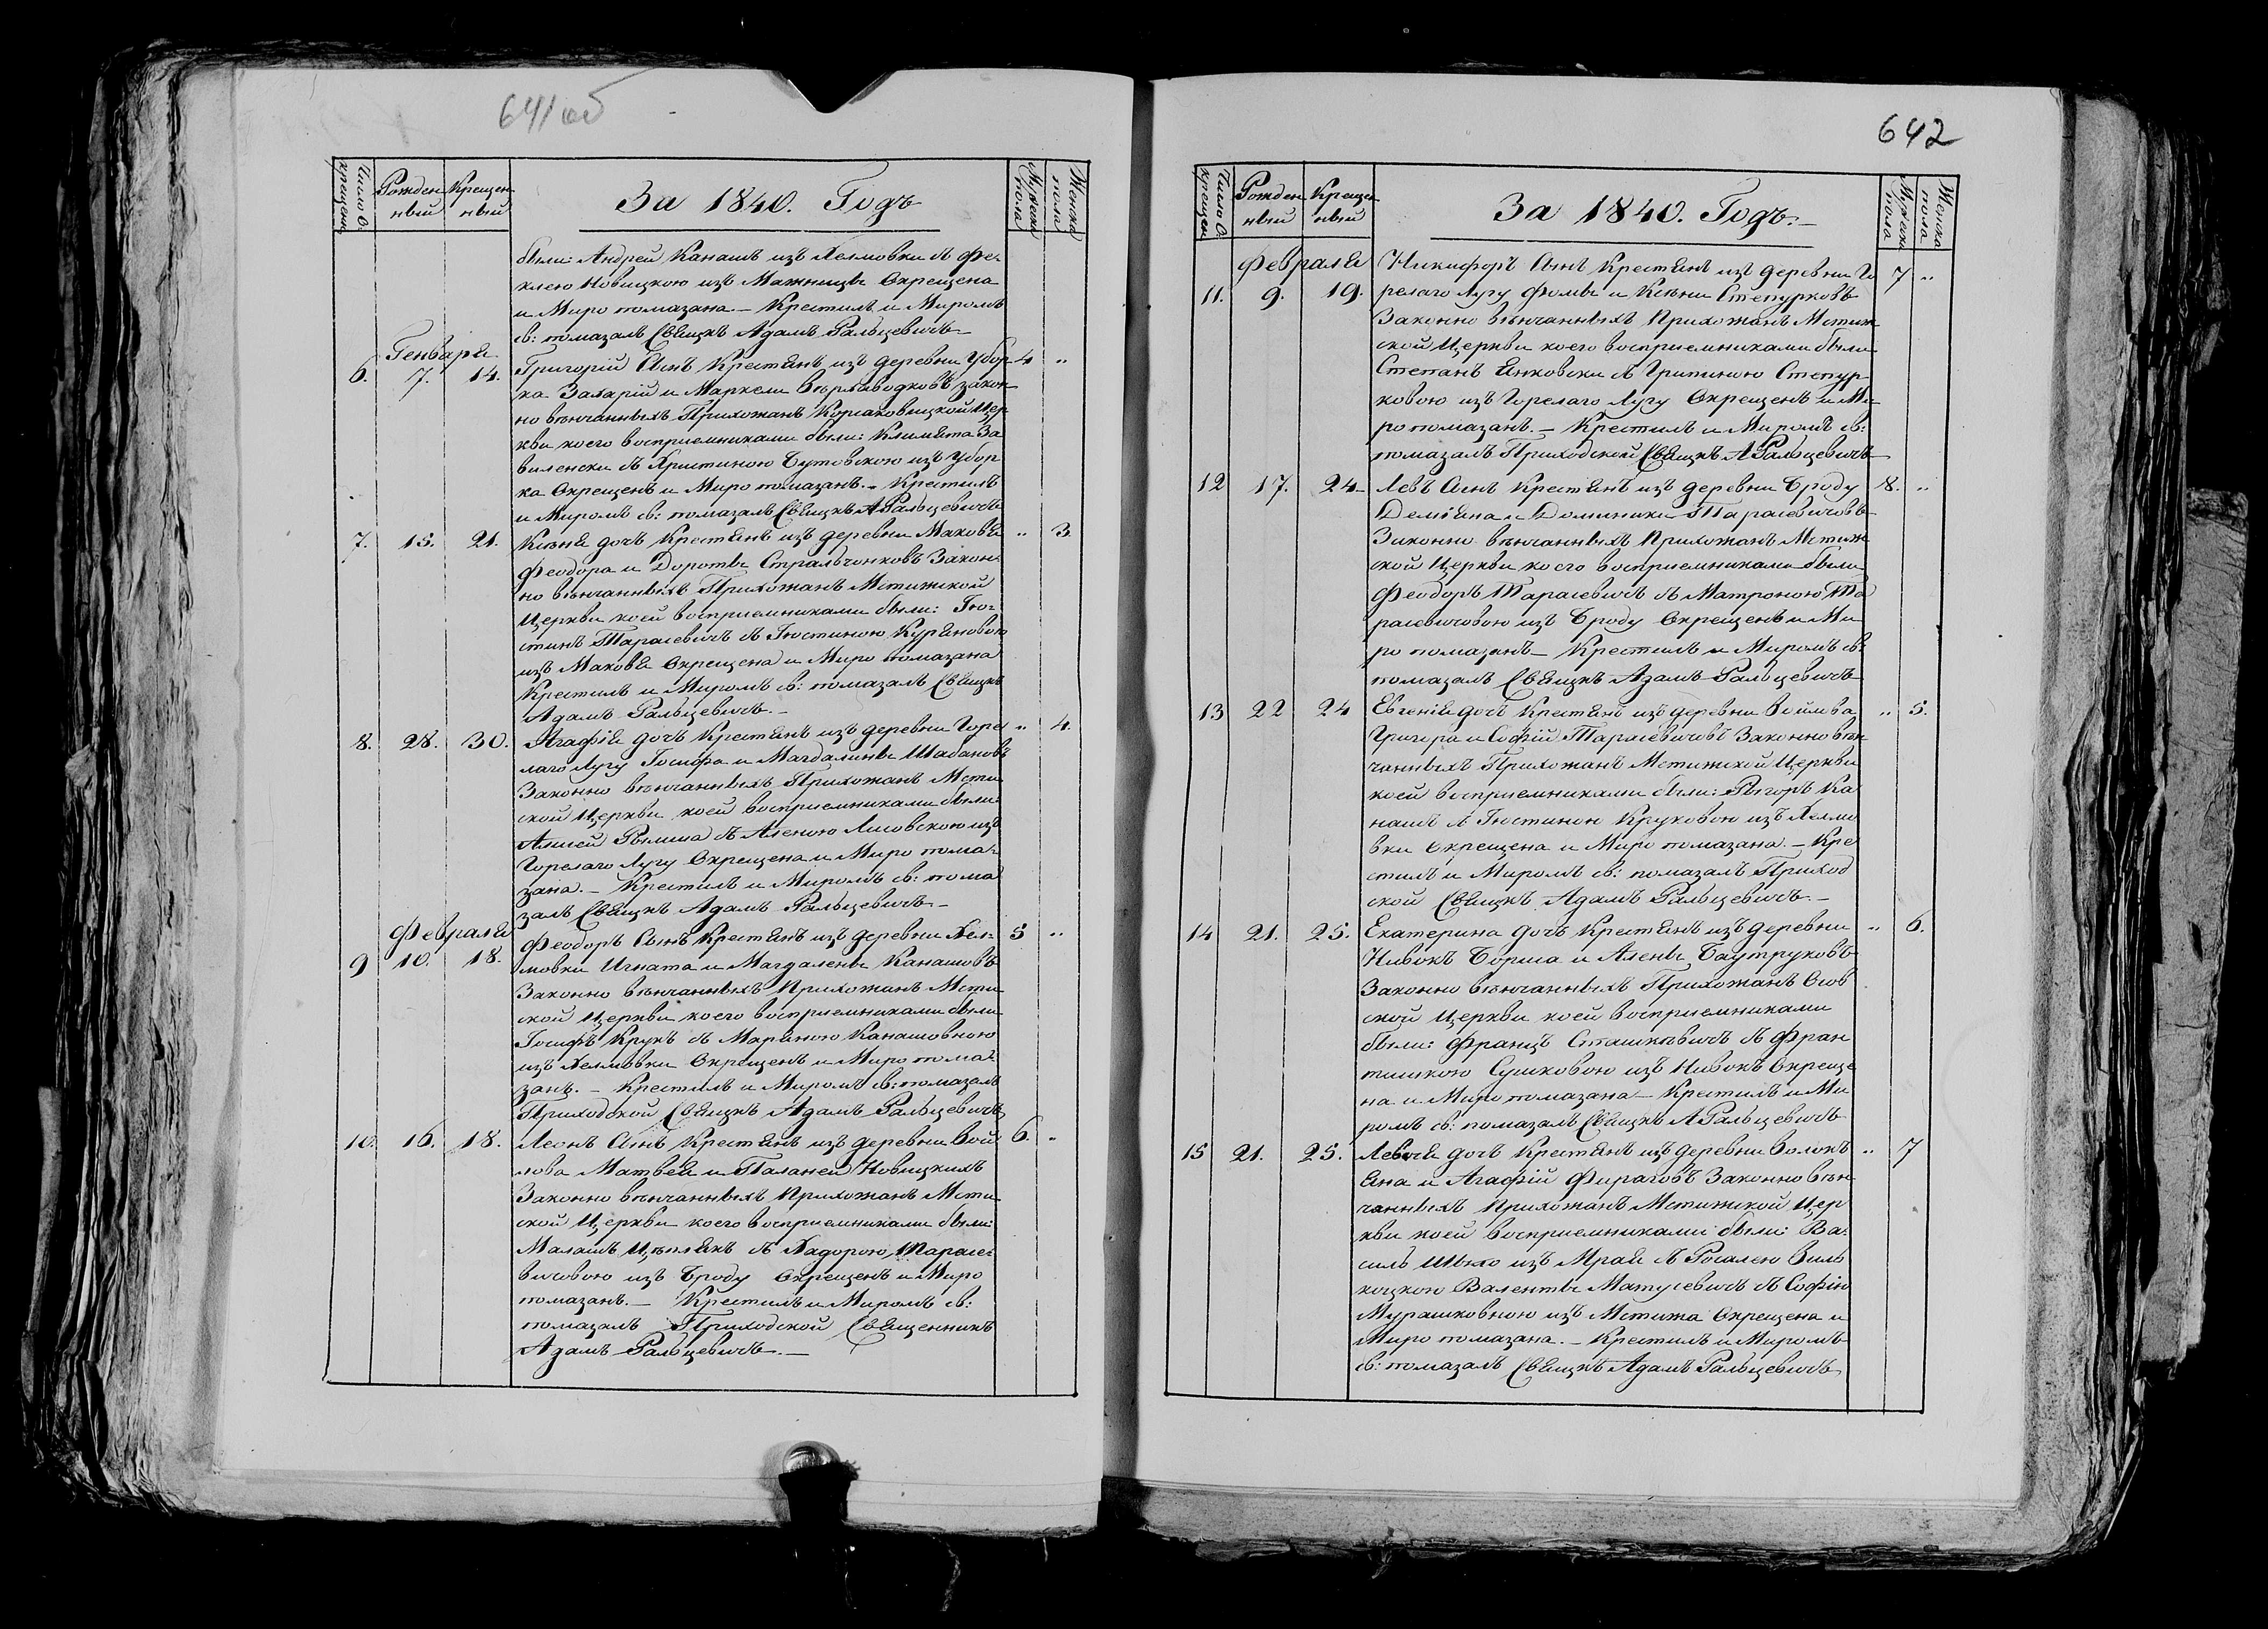 641 об
Число О. крещен.
Рожден
ный
Крещен
ный
За 1840. Годъ
Мужеска
пола
Женска
пола
были: Андрей Канашъ изъ Хелмовки съ Фе-
клею Новицкою изъ Мажницы Окрещена
и Миро помазана. — Крестилъ и Миромъ
св: помазалъ Свящкъ Адамъ Ральцевичъ —
Генваря
6. 7. 14. Григорій Сынъ Крестянъ изъ деревни Убор- 4 "
ка Захарій и Маркели законъ
но вѣнчанныхъ Прихожанъ Корсаковицкой Цер
кви коего восприемниками были: Климята За
виленски съ Христиною Бутовскою изъ Убор
ка Окрещенъ и Миро помазанъ. — Крестилъ
и Миромъ св: помазалъ Свящкъ А Ральцевичъ
7. 15. 21. Ксѣня дочъ Крестянъ изъ деревни Маковя " 3
Феодора и Дороты Стральчонковъ Закон-
но вѣнчанныхъ Прихожанъ Мстижской
Церкви коей восприемниками были: Гю-
стинъ Тарасевичъ съ Гюстиною Куряновою
изъ Маковя Окрещена и Миро помазана
Крестилъ и Миромъ св: помазалъ Свящкъ
Адамъ Ральцевичъ. —
8. 28. 30. Агафія дочъ Крестянъ изъ деревни Горе " 4.
лаго Лугу Госифа и Магдалины Шабановъ
Законно вѣнчанныхъ Прихожанъ Мсти
ской Церкви коей восприемниками были:
Алисей Рымша съ Аленою Лисовскою изъ
Горелаго Лугу Окрещена и Миро пома-
зана. — Крестилъ и Миромъ св: пома
залъ Свящкъ Адамъ Ральцевичъ. —
Февраля
9 10. 18. Феодоръ Сынъ Крестянъ изъ деревни Хел- 5 "
мовки Игната и Магдалены Канашовъ
Законно вѣнчанныхъ Прихожанъ Мсти
ской Церкви коего восприемниками были
Госифъ Крукъ съ Маряною Канашовною
изъ Хелмовки Окрещенъ и Миро пома-
занъ. — Крестилъ и Миромъ св: помазалъ
Приходской Свящкъ Адамъ Ральцевичъ
10. 16. 18. Леонъ Сынъ Крестянъ изъ деревни Вой 6. "
лова Матвея и Паланеи Новицкихъ
Законно вѣнчанныхъ Прихожанъ Мсти
ской Церкви коего восприемниками были:
Малашъ Цѣплякъ съ Хадорою Тарасе-
вичовою изъ Броду Окрещенъ и Миро
помазанъ. — Крестилъ и Миромъ св:
помазалъ Приходской Священникъ
Адамъ Ральцевичъ. —
642
Число О. крещен.
Рожден
ный
Крещен
ный
За 1840. Годъ. —
Мужеск
пола
Женска
пола
Февраля
11. 9. 19. Никифоръ Сынъ Крестянъ изъ деревни Го 7 "
релаго Лугу Фомы и Ксѣни Степурковъ
Законно вѣнчанныхъ Прихожанъ Мстиж
ской Церкви коего восприемниками были
Степанъ Янковски съ Грипиною Степур
ковою изъ Горелаго Лугу Окрещенъ и Ми-
ро помазанъ. — Крестилъ и Миромъ св:
помазалъ Приходской Свящкъ А Ральцевичъ
12 17. 24 Левъ Сынъ Крестянъ изъ деревни Броду 8. "
Демьяна и Доминики Тарасевичовъ
Законно вѣнчанныхъ Прихожанъ Мстиж
ской Церкви коего восприемниками были
Феодоръ Тарасевичъ съ Матроною Та
расевичовою изъ Броду Окрещенъ и Ми
ро помазанъ — Крестилъ и Миромъ св:
помазалъ Свящкъ Адамъ Ральцевичъ
13 22 24 Евгенія дочъ Крестянъ изъ деревни Войлова " 5.
Григора и Софіи Тарасевичовъ Законно вѣн
чанныхъ Прихожанъ Мстижской Церкви
коей восприемниками были: Рыгоръ Ка
нашъ съ Гюстиною Круковою изъ Хелмо
вки Окрещена и Миро помазана. — Кре
стилъ и Миромъ св: помазалъ Приход
ской Свящкъ Адамъ Ральцевичъ. —
14 21. 25. Екатерина дочъ Крестянъ изъ деревни " 6.
Нивокъ Бориса и Алены Баутруковъ
Законно вѣнчанныхъ Прихожанъ Осов
ской Церкви коей восприемниками
были: Францъ Сташкевичъ съ Фран
тишкою Сушковою изъ Нивокъ Окреще
на и Миро помазана — Крестилъ и Ми
ромъ св: помазалъ Свящкъ А Ральцевичъ
15 21. 25. дочъ Крестянъ изъ деревни Волокъ " 7
Яна и Агафій Фираговъ Законно вѣн
чанныхъ Прихожанъ Мстижской Цер
кви коей восприемниками были: Ва-
силь изъ Мрай съ Розалею Виль
коцкою Валенты Матусевичъ съ Софіею
Мурашковною изъ Мстижа Окрещена и
Миро помазана. — Крестилъ и Миромъ
св: помазалъ Свящкъ Адамъ Ральцевичъ